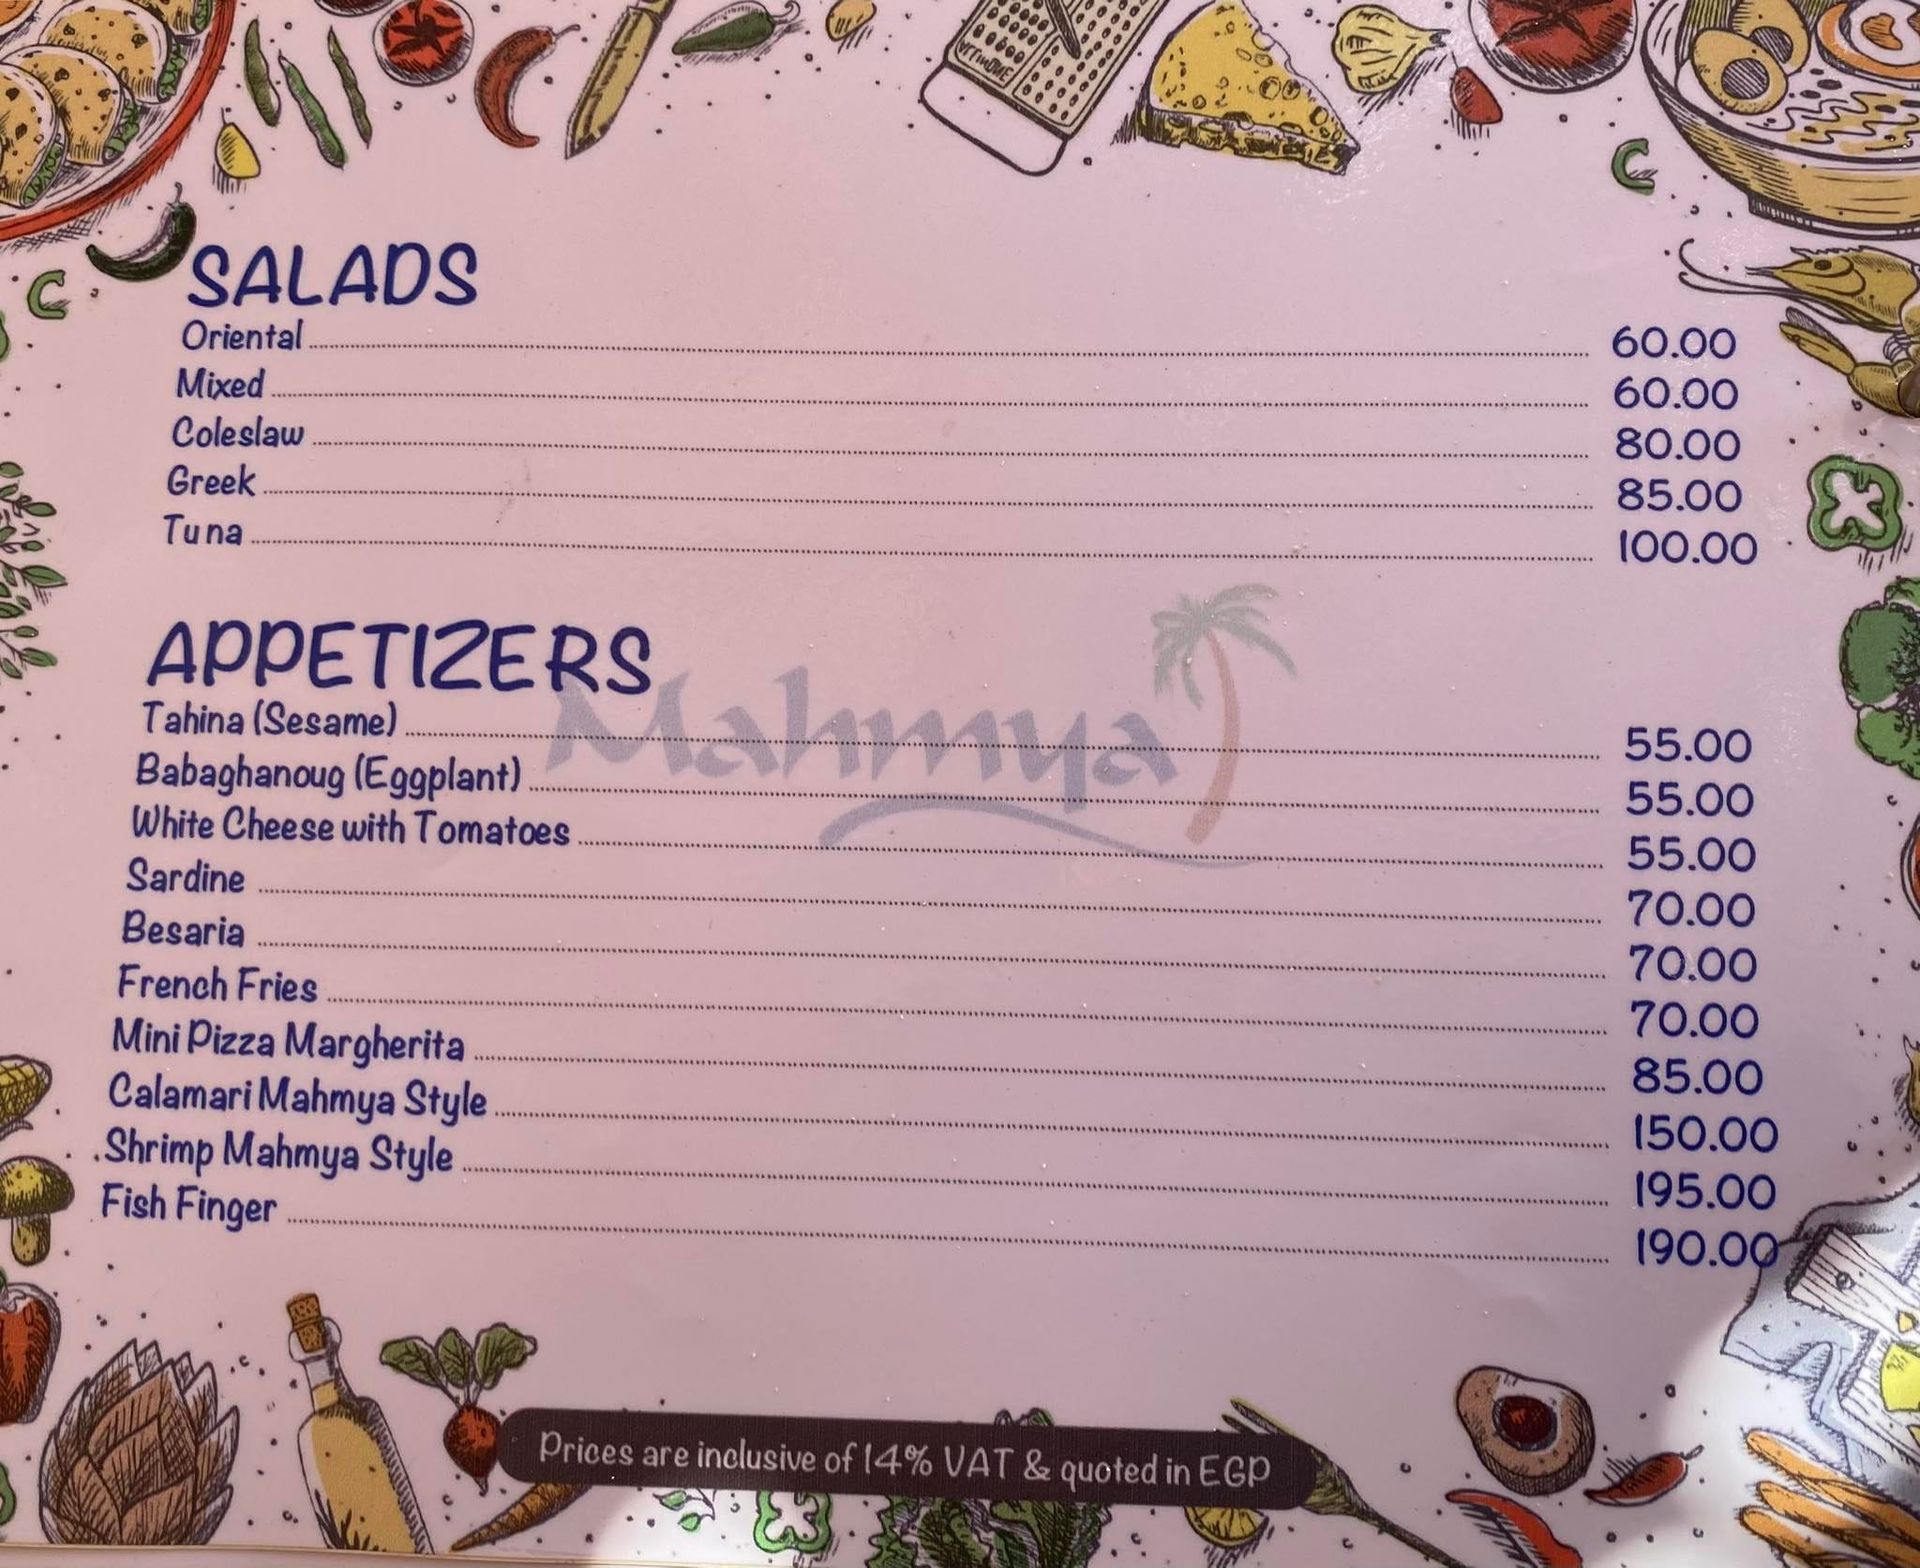 SALADS
Oriental 60.00
Mixed 60.00
Coleslaw 80.00
Greek 85.00
Tuna 100.00
APPETIZERS
Mahmya
Tahina (Sesame) 55.00
Babaghanoug (Eggplant) 55.00
White Cheese with Tomatoes 55.00
Sardine 70.00
Besaria 70.00
French Fries 70.00
Mini Pizza Margherita 85.00
Calamari Mahmya Style 150.00
.Shrimp Mahmya Style 195.00
Fish Finger 190.00
Prices are inclusive of 14% VAT & quoted in EGP